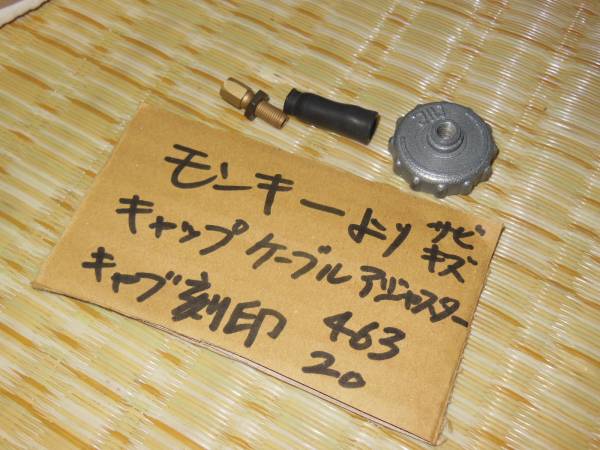 モンキーより サビ
キズ
キャップ ケーブル アジャスター
キャブ 刻印 463
20